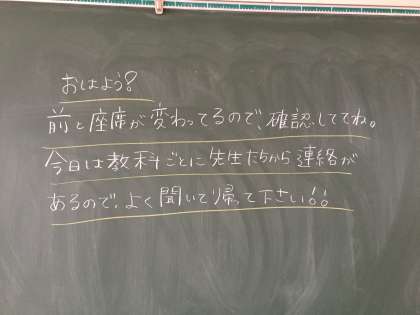 おはよう?
前と座席が変わってるので、確認しててね。
今日は教科ごとに先生たちから連絡が
あるので、よく聞いて帰って下さい!!